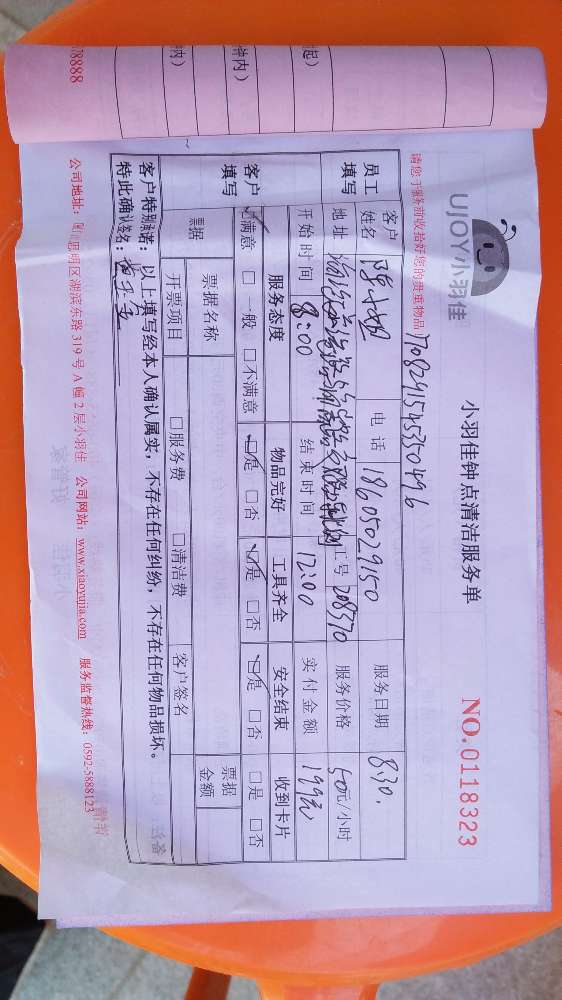 UJOY小羽佳
小羽佳钟点清洁服务单
NO.0118323
请您于服务前收拾好您的贵重物品
员工填写
客户姓名 陈小姐 电话 18605029150 服务日期 8.30.
地址 工号 208570 服务价格 50元/小时
开始时间 8:00 结束时间 12:00 实付金额 199元
客户填写
服务态度 物品完好 工具齐全 安全结束 收到卡片
☑满意 □一般 □不满意 ☑是 □否 ☑是 □否 ☑是 □否 □是 □否
票据 票据名称 票据金额
开票项目 □服务费 □清洁费 客户签名
客户特别承诺：以上填写经本人确认属实，不存在任何纠纷，不存在任何物品损坏。
特此确认签名：
公司地址：思明区湖滨东路319号A幢2层小羽佳 公司网站：www.xiaoyujia.com 服务监督热线：0592-5888123